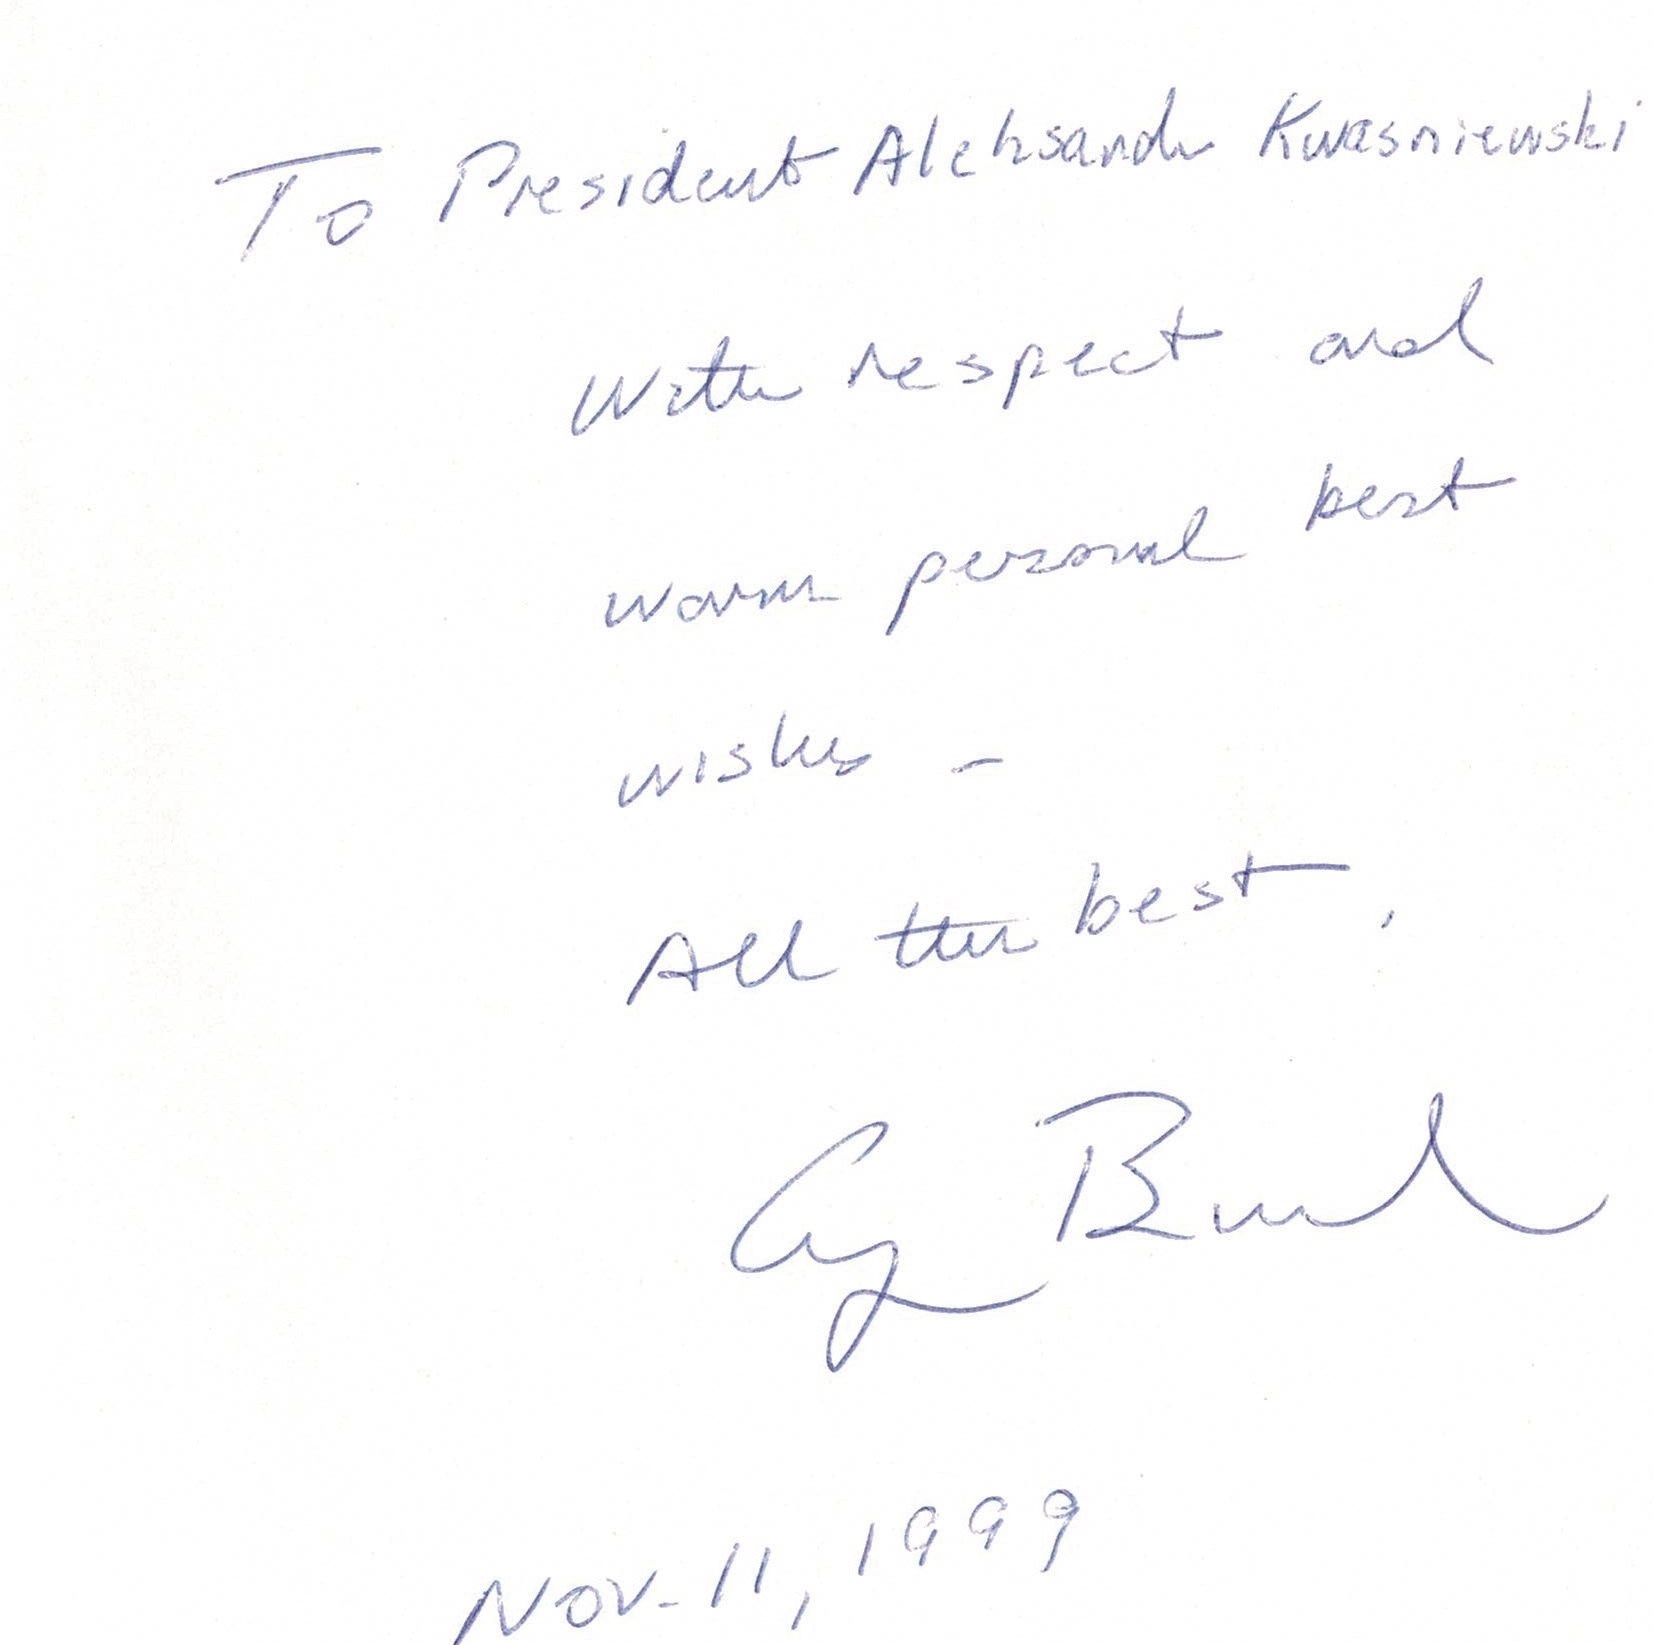 To President Aleksandr Kwasniewski
With respect and
warm personal best
wishes -
All the best,
Gg Bush
Nov. 11, 1999